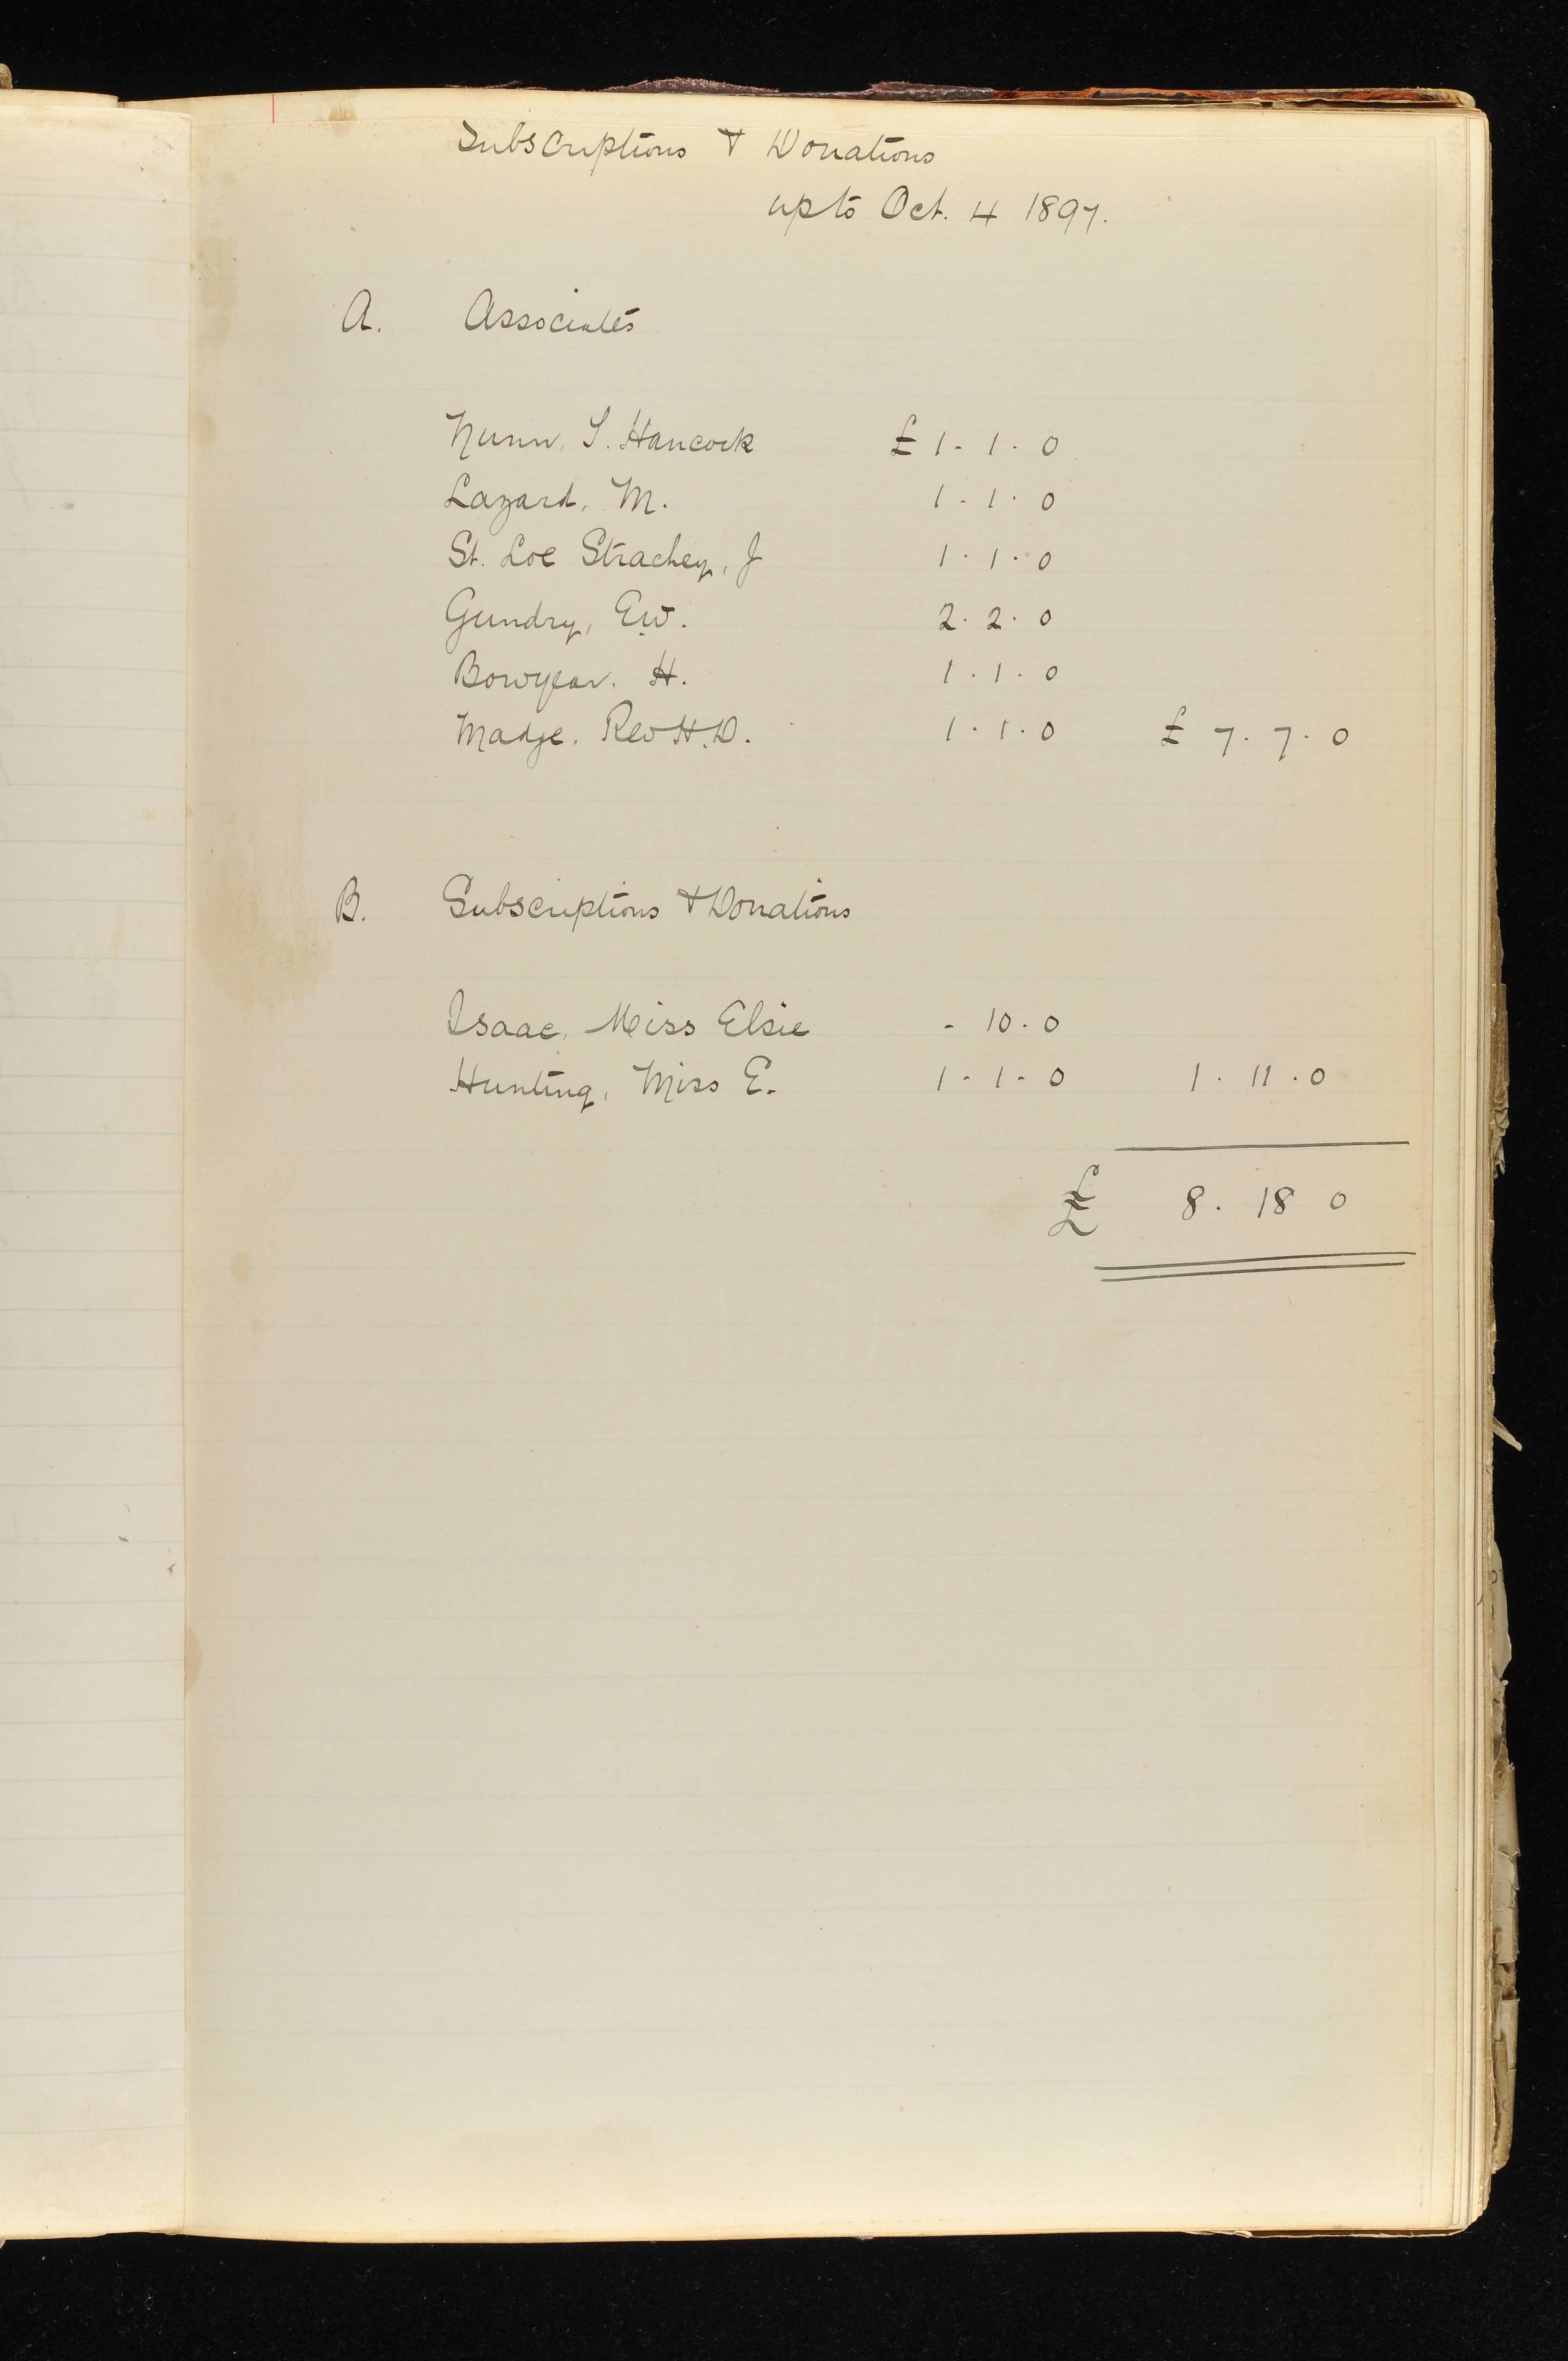 Subscriptions & Donations
up to Oct. 4 1897.
A. Associates
Nunn, T. Hancock £1-1.0
Lazard, M. 1-1.0
St. Loe Strachey, J 1.1.0
Gundry, E.W. 2.2.0
Bowyear. H. 1.1.0
Madge. Rev H.D. 1.1.0 £7.7.0
B. Subscriptions & Donations
Isaac, Miss Elsie - 10.0
Hunting, Miss E. 1-1-0 1.11.0
£ 8.18 0